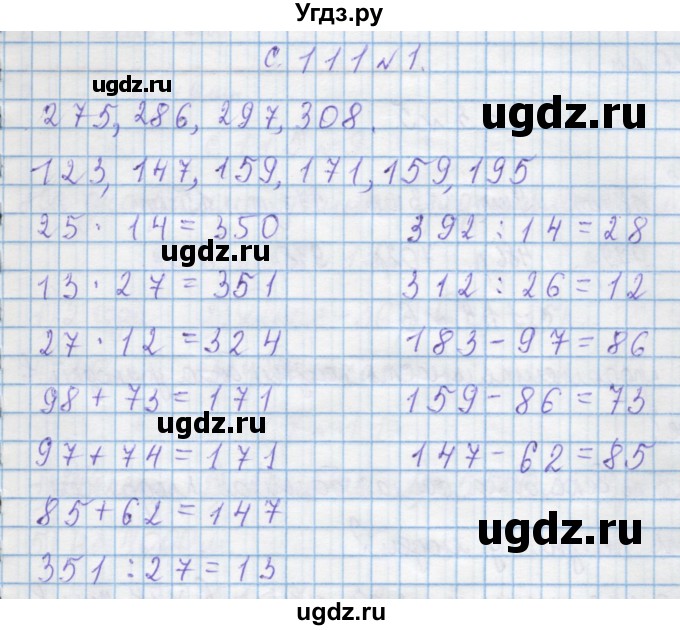 Угдз.ру
с. 111 №1.
ugdz.ru
ugdz.ru
275, 286, 297, 308.
123, 147, 159, 171, 159, 195
25 · 14 = 350
392 : 14 = 28
ugdz.ru
13 · 27 = 351
312 : 26 = 12
27 · 12 = 324
183 - 97 = 86
98 + 73 = 171
159 - 86 = 73
ugdz.ru
97 + 74 = 171
147 - 62 = 85
85 + 62 = 147
ugdz.ru
351 : 27 = 13
ugdz.ru